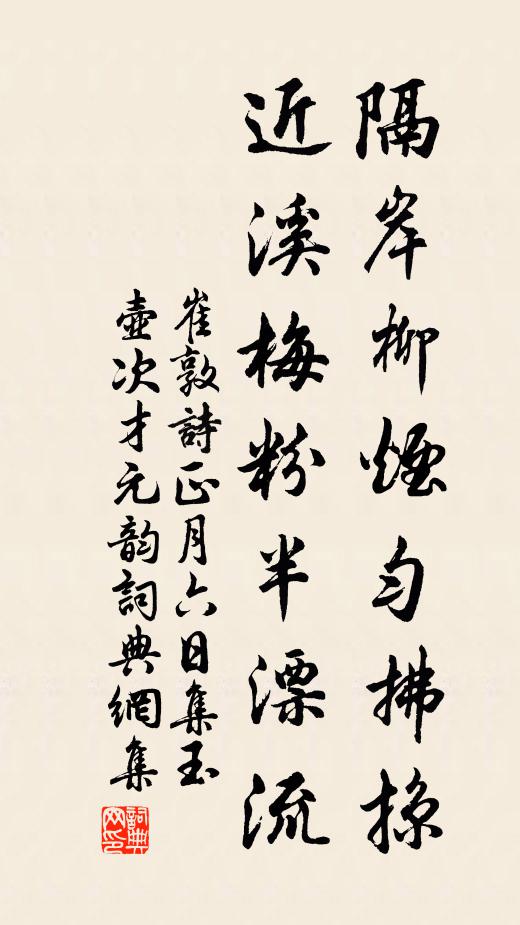 隔岸柳煙勻拂掠
近溪梅粉半漂流
崔敦詩正月六日集玉
壷次才元韵詞典網集
詞典
网印